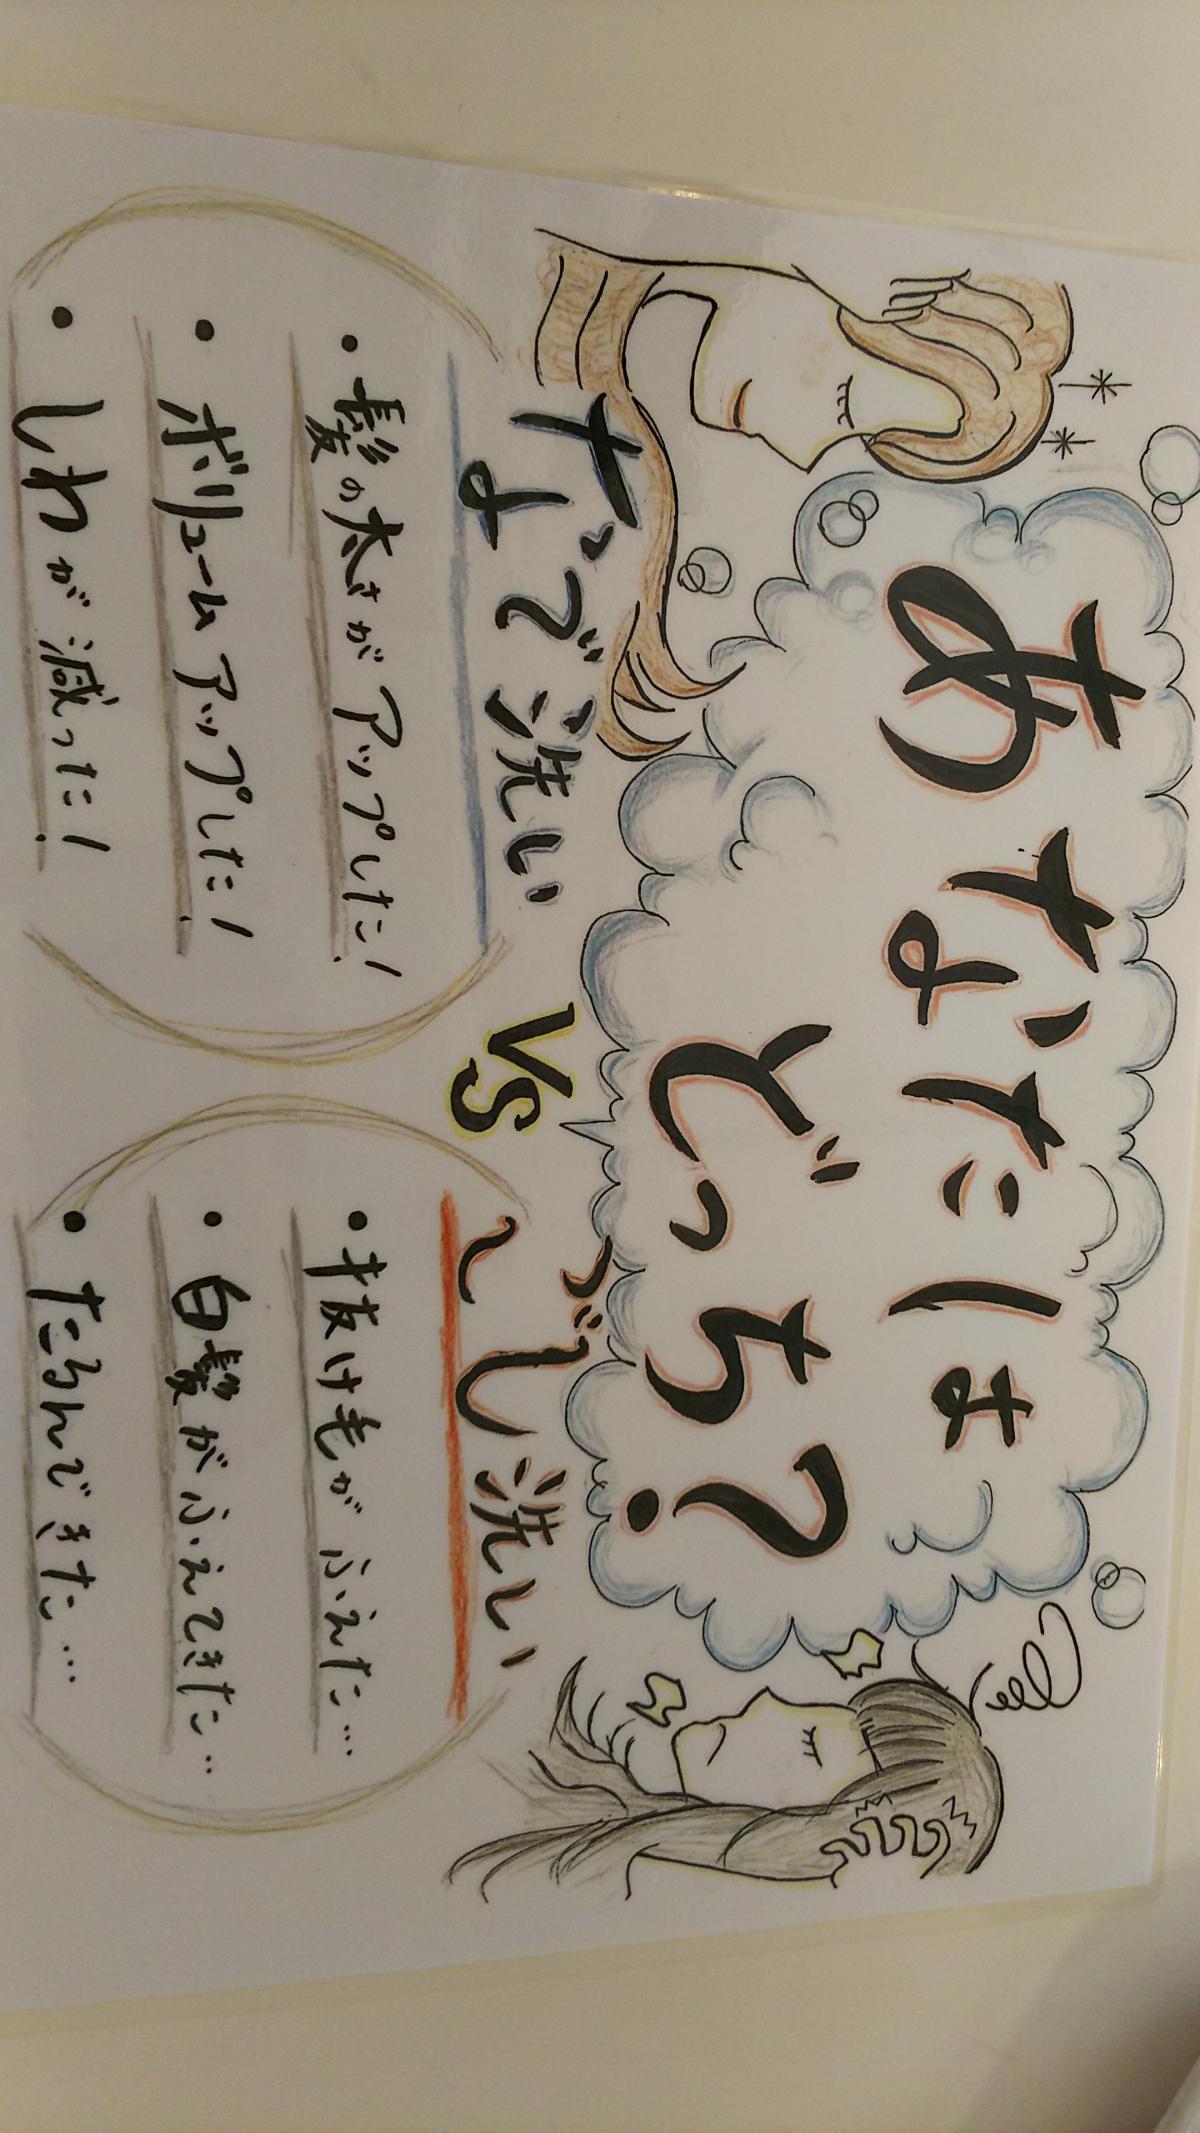 あなたは
どっち?
なで洗い
VS
ごし洗い
・髪の太さがアップした!
・ボリュームアップした!
・しわが減った!
・抜け毛がふえた…
・白髪がふえてきた…
・たるんできた…